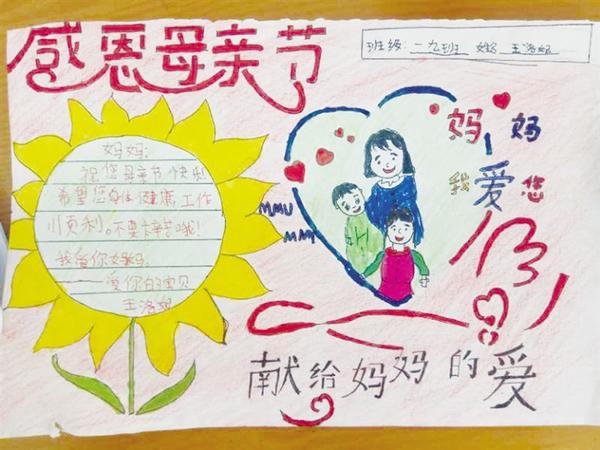 感恩母亲节
班级：一九班 姓名 王洛妮
妈妈：
祝您母亲节快乐！
希望您身体健康，工作
川页利。不要太辛苦哦！
我爱你妈妈
——爱你的宝贝
王洛妮
MMU
MMY
妈妈
我爱您
献给妈妈的爱